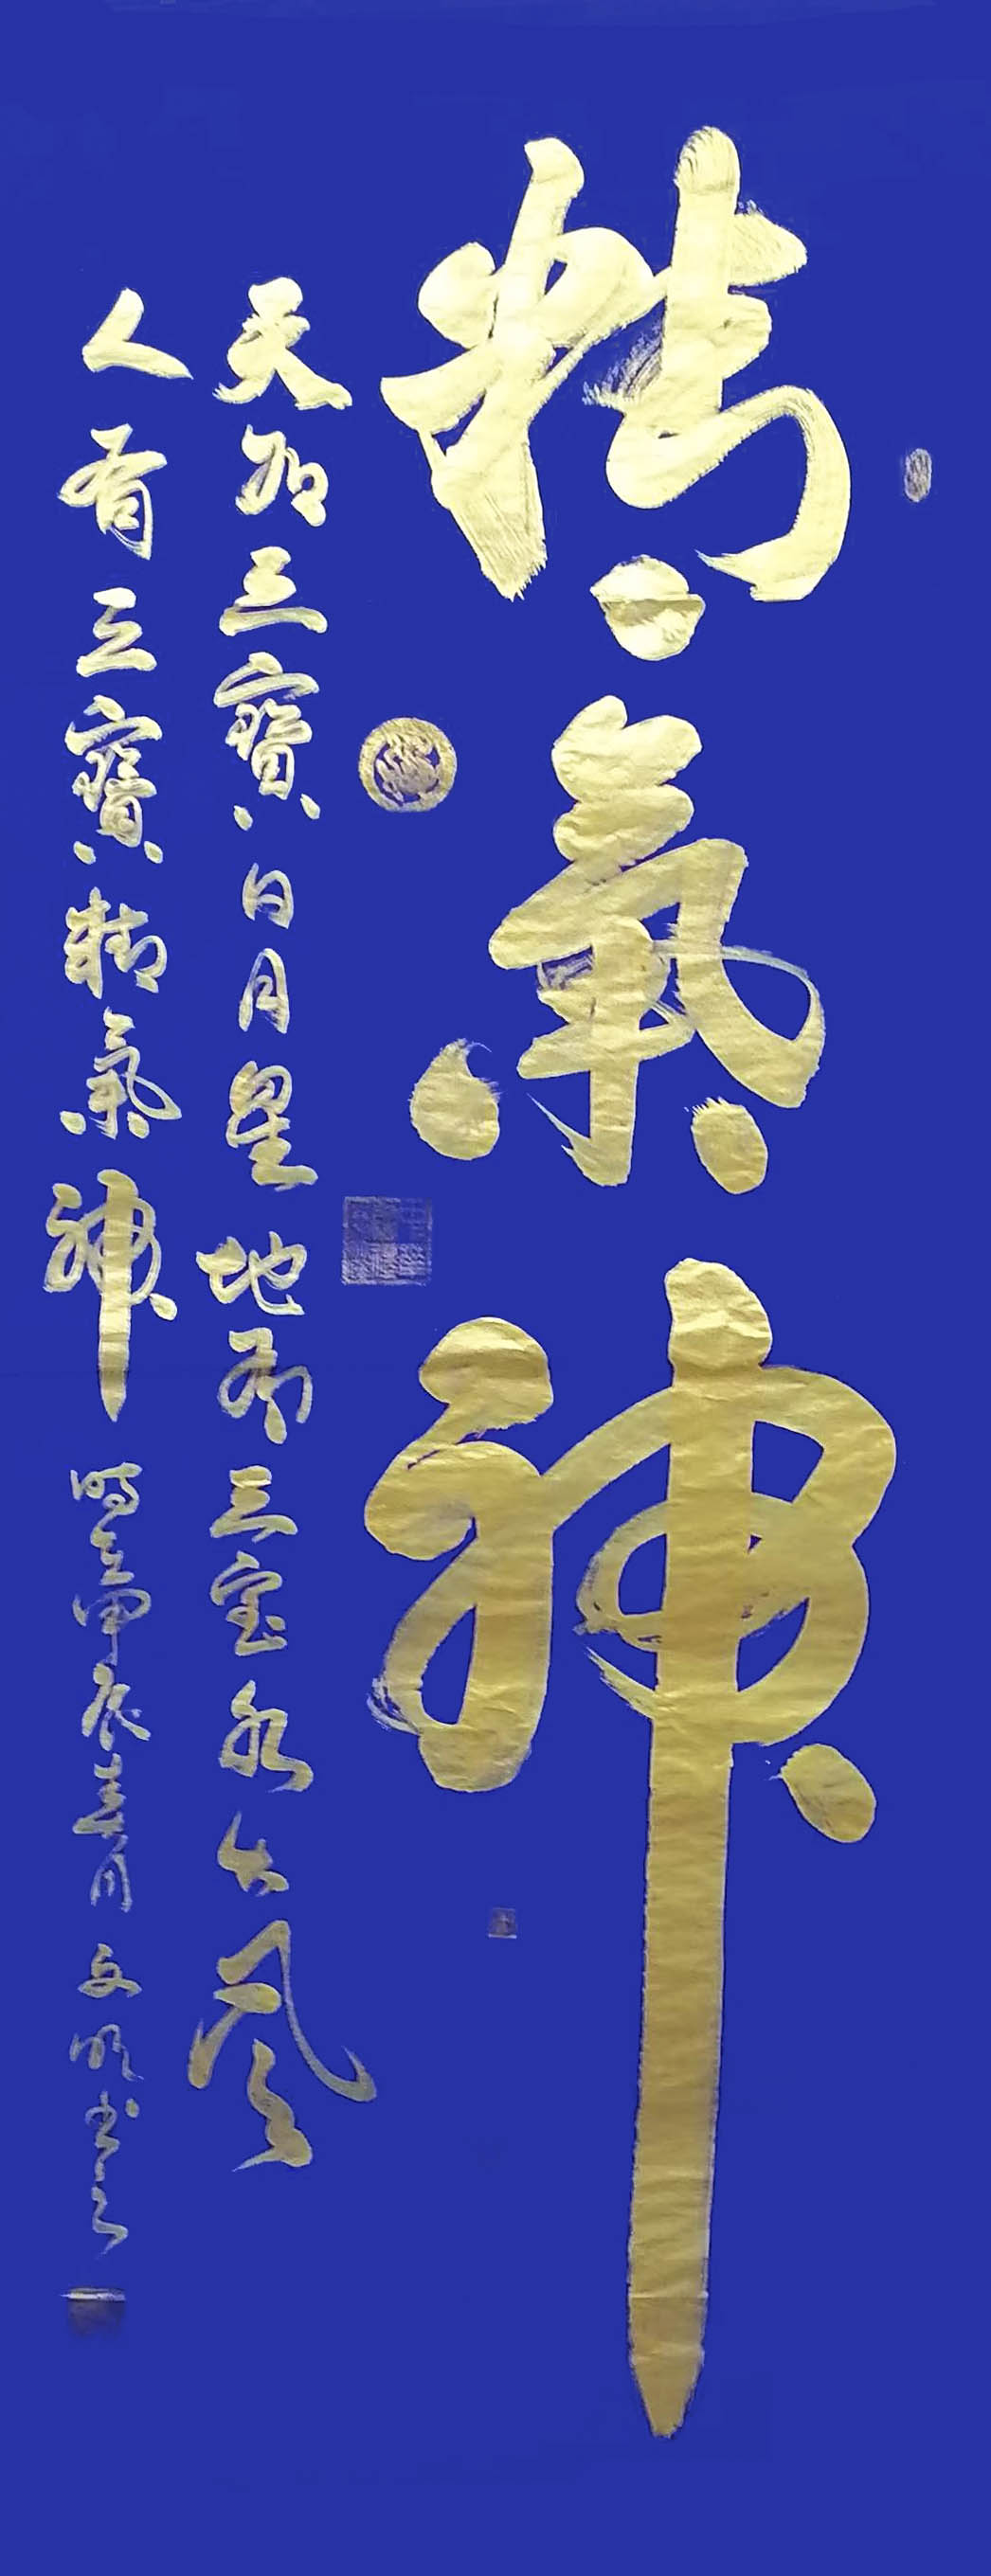 精氣神
天有三寶日月星地有三宝水火風
人有三寶精氣神時在甲辰春月文明书之